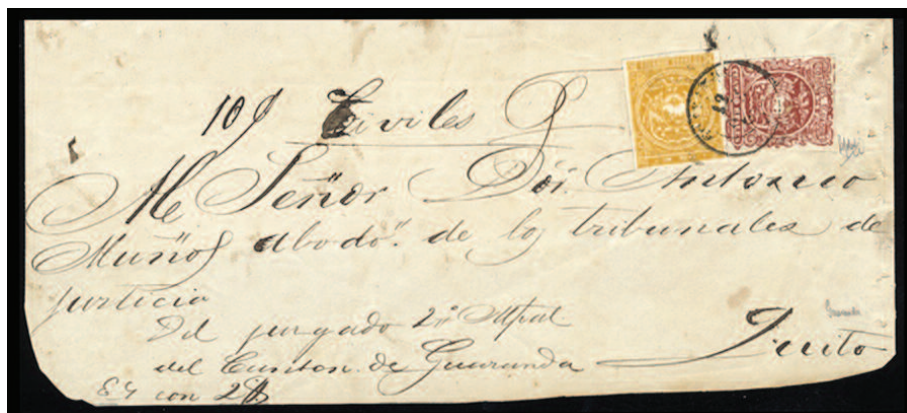 10 Civiles
Al Señor Dor. Antonio
Muñoz abodo. de los tribunales de
justicia
Del jusgado 2o. Mpal
del Canton de Guaranda Quito
con 2